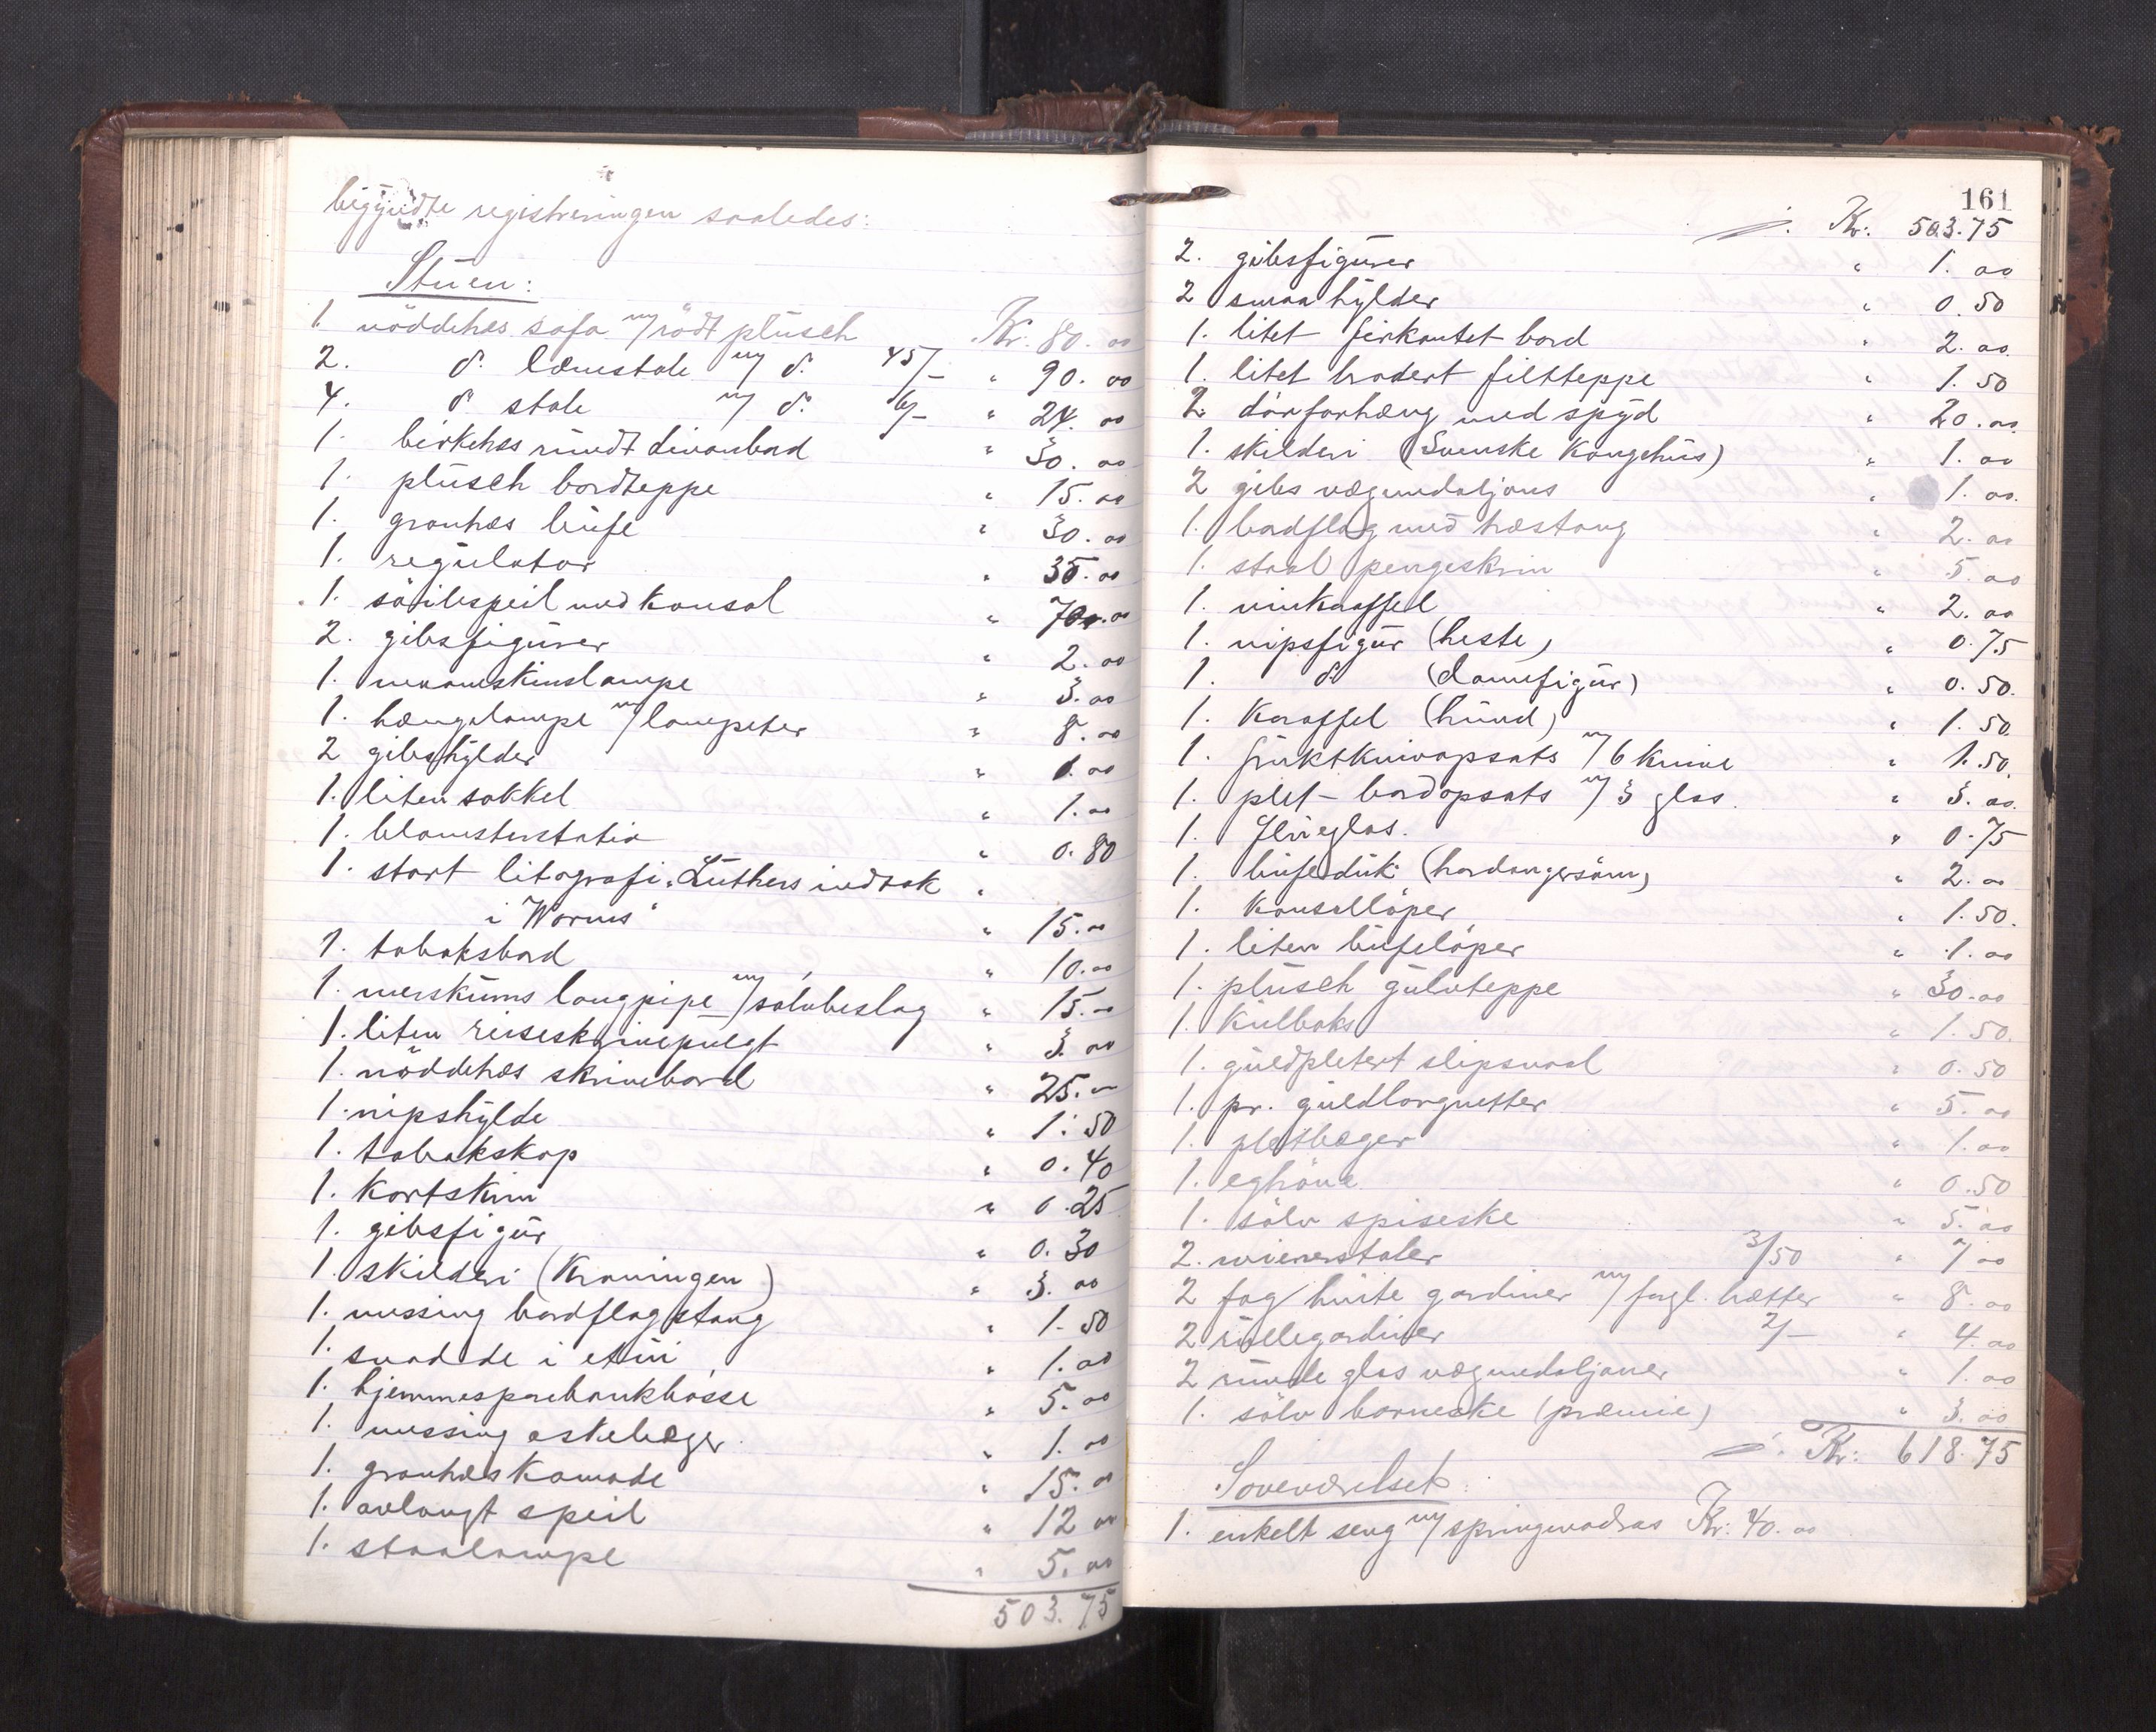 begyndte registreringen saaledes:
Stuen:
1. nöddetræs sofa m/ rödt plüsch Kr. 80.00
2. d. lænestole m/ d. 45/- " 90.00
4. d. stole m/ d. 6/- " 24.00
1. birketræs rundt divanbord " 30.00
1. plüsch bordteppe " 15.00
1. grantræs büfe " 30.00
1. regulator " 35.00
1. söilespeil med konsol " 70.00
2. gibsfigurer " 2.00
1. maaneskinslampe " 3.00
1. hængelampe m/ lampeter " 8.00
2 gibshylder " 1.00
1. liten sokkel " 1.00
1. blomsterstativ " 0.80
1. stort litografi "Luthers indtok "
i Worms" " 15.00
1. tobaksbord " 10.00
1. merskums langpipe m/ sölvbeslag " 15.00
1. liten reiseskrivepulgt " 3.00
1. nöddetræs skrivebord " 25.00
1. nipshylde " 1.50
1. tobakskop " 0.40
1. kortskrin " 0.25
1. gibsfigur " 0.30
1. skilderi (Kroningen) " 3.00
1. messing bordflagstang " 1.50
1. snadde i etui " 1.00
1. hjemmesparebankbösse " 5.00
1. messing askebæger " 1.00
1. grantræs komode " 15.00
1. avlangt speil " 12.00
1. staalampe " 5.00
503.75
161
Kr. 503.75
2. gibsfigurer " 1.00
2 smaa hylder " 0.50
1. litet firkantet bord " 2.00
1. litet brodert filtteppe " 1.50
2 dörforhæng med spyd " 20.00
1. skilderi (Svenske Kongehus) " 1.00
2 gibs vægmedaljons " 1.00
1. bordflag med træstang " 2.00
1. staal pengeskrin " 5.00
1. vinkaraffel " 2.00
1. nipsfigur (heste) " 0.75
1. d. (damefigur) " 0.50
1. karaffel (hund) " 1.50
1. fruktknivopsats m/ 6 knive " 1.50
1. plet-bordopsats m/ 3 glas. " 3.00
1. flueglas. " 0.75
1. büfedük (hardangersöm) " 2.00
1. konsollöper " 1.50
1. liten büfelöper " 1.00
1. plüsch gulvteppe " 30.00
1. kulboks " 1.50
1. guldpletert slipsnaal " 0.50
1. pr. guldlorgnetter " 5.00
1. pletbæger " 1.00
1. eghöne " 0.50
1. sölv spiseske " 5.00
2. wienerstoler 3/50 " 7.00
2 fag hvite gardiner m/ forgl. hætter " 8.00
2 rullegardiner 2/- " 4.00
2 runde glas vægmedaljoner " 1.00
1. sölv barneske (præmie) " 3.00
Kr: 618.75
Soveværelset:
1. enkelt seng m/ springmadras Kr. 40.00